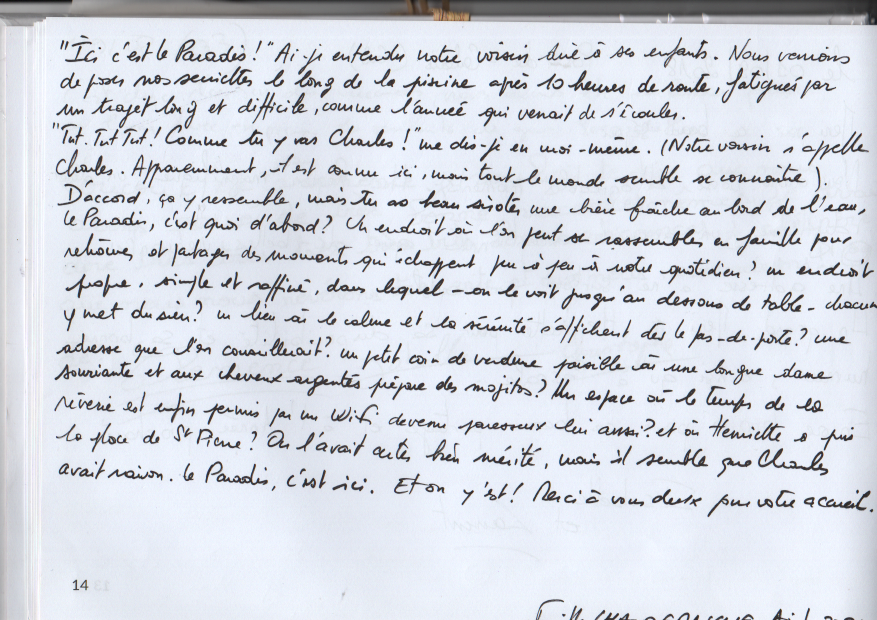 "Ici c'est le Paradis!" Ai-je entendu notre voisin dire à ses enfants. Nous venions
de poser nos serviettes le long de la piscine après 10 heures de route, fatigués par
un trajet long et difficile, comme l'année qui venait de s'écouler.
"Tut. Tut Tut! Comme tu y vas Charles!" me dis-je en moi-même. (Notre voisin s'appelle
Charles. Apparemment, il est comme ici, mais tout le monde semble se connaître).
D'accord, ça y ressemble, mais tu as beau siroter une bière fraîche au bord de l'eau,
le Paradis, c'est quoi d'abord? Un endroit où l'on peut se rassembler en famille pour
retrouver et partager des moments qui échappent peu à peu à notre quotidien? un endroit
propre, simple et raffiné, dans lequel - on le voit jusqu'au dessous de table - chacun
y met du sien? un lieu où le calme et la sérénité s'affichent dès le pas-de-porte? une
adresse que l'on conseillerait? un petit coin de verdure paisible où une longue dame
souriante et aux cheveux argentés prépare des mojitos? Un espace où le temps de la
rêverie est enfin permis par un Wifi devenu paresseux lui aussi? et où Henriette a pris
la place de St Pierre? On l'avait certes bien mérité, mais il semble que Charles
avait raison. Le Paradis, c'est ici. Et on y est! Merci à vous deux pour votre accueil.
14